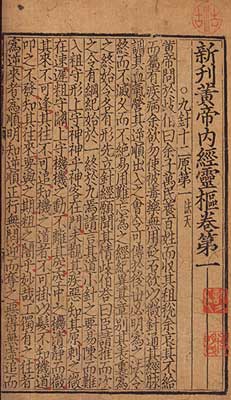 新刊黃帝內經靈樞卷第一
九針十二原第一 法天
黃帝問於岐伯曰余子萬民養百姓而收其租稅余哀其不給
而屬有疾病余欲勿使被毒藥無用砭石欲以微針通其經脉
調其血氣營其逆順出入之會令可傳於後世必明為之法令
終而不滅久而不絕易用難忘為之經紀異其章別其表裏為
之終始令各有形先立針經願聞其情岐伯荅曰臣請推而次
之令有綱紀始於一終於九焉請言其道小針之要易陳而難
入粗守形上守神神乎神客在門未覩其疾惡知其原刺之微
在速遲粗守關上守機機之動不離其空空中之機清靜而微
其來不可逢其往不可追知機之道者不可掛以髮不知機道
叩之不發知其往來要與之期粗之闇乎妙哉工獨有之往者
為逆來者為順明知逆順正行無問迎而奪之惡得無虛追而